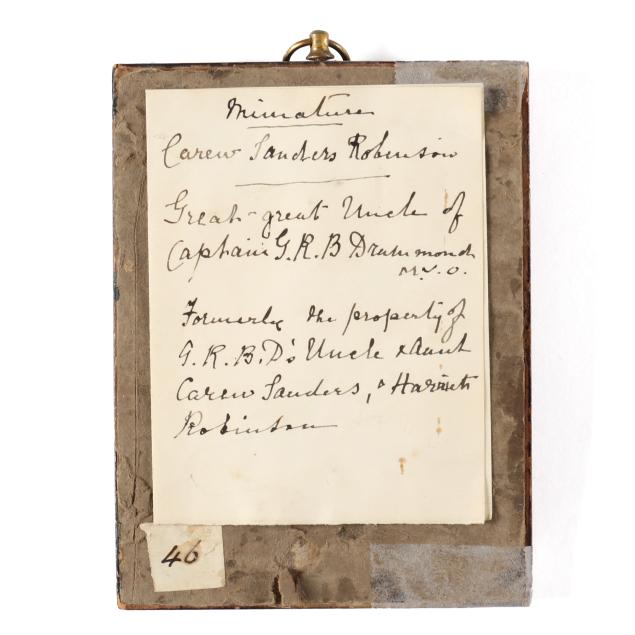 Miniature
Carew Sanders Robinson
Great-great Uncle of
Captain G.R.B Drummond
M.V.O.
Formerly the property of
G.R.B.D's Uncle & Aunt
Carew Sanders, & Harriett
Robinson
46